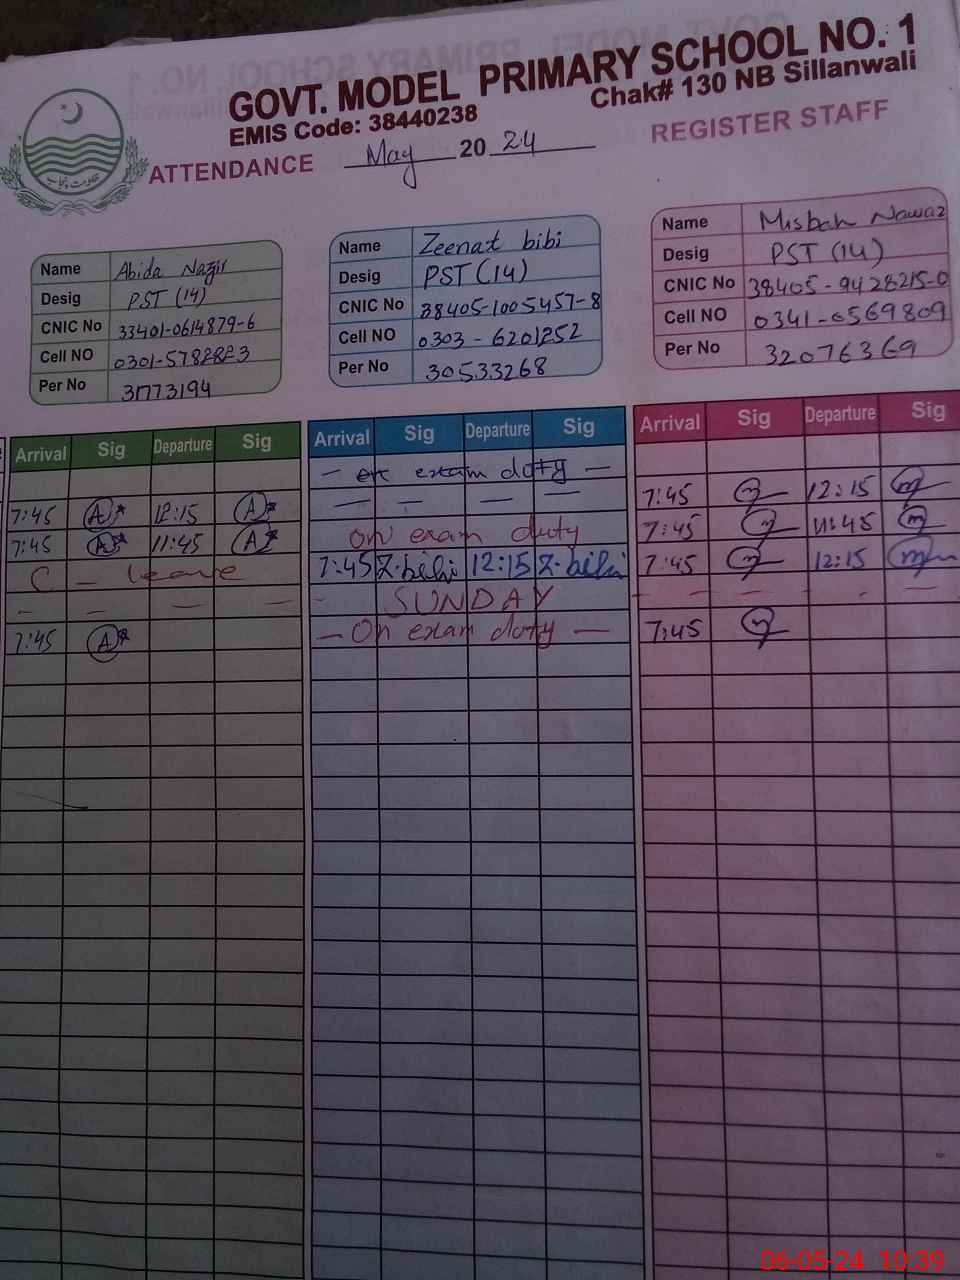 GOVT. MODEL PRIMARY SCHOOL NO. 1
EMIS Code: 38440238 Chak# 130 NB Sillanwali
ATTENDANCE May 2024 REGISTER STAFF
حکومت پنجاب
Name Abida Nazir
Desig PST (14)
CNIC No 33401-0614879-6
Cell NO
Per No 31773194
Name Zeenat bibi
Desig PST (14)
CNIC No 38405-1005457-8
Cell NO 0303-6201252
Per No 30533268
Name Misbah Nawaz
Desig PST (14)
CNIC No 38405-9428215-0
Cell NO 0341-0569809
Per No 32076369
Arrival Sig Departure Sig Arrival Sig Departure Sig Arrival Sig Departure Sig
— exam duty —
7:45 A 12:15 A — — — — 7:45 12:15
7:45 A 11:45 A on exam duty 7:45 11:45
C - leave 7:45 Z.bibi 12:15 Z.bibi 7:45 12:15
— — — — SUNDAY — — — —
7:45 A — On exam duty — 7:45
06-05-24 10:39